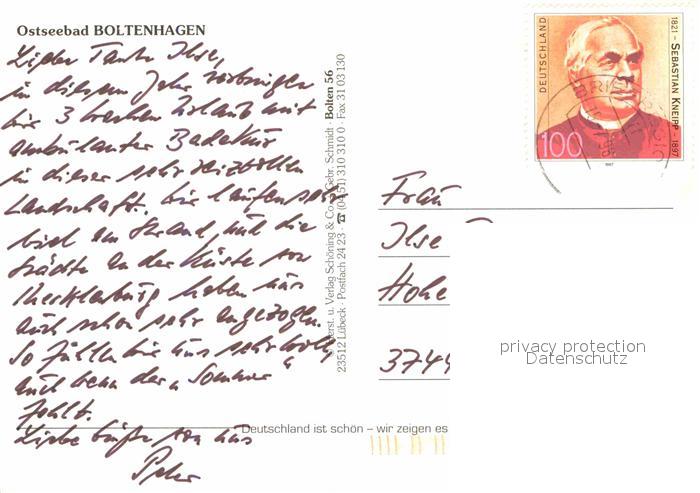 Ostseebad BOLTENHAGEN
Lieber Tante Ilse,
in diesem Jahr verbringen
wir 3 Wochen Urlaub mit
ambulanter Badekur
in dieser sehr reizvollen
Landschaft. Wir laufen sehr
viel am Strand, und die
Städte an der Küste von
Mecklenburg haben uns
auch schon sehr angezogen.
So fühlen wir uns sehr wohl,
auch wenn der "Sommer"
fehlt.
Liebe Grüße von uns
Peter
Herst. u. Verlag Schöning & Co. + Gebr. Schmidt · Bolten 56
23512 Lübeck · Postfach 24 23 · ☎ (04 51) 310 310 0 · Fax 31 03 130
DEUTSCHLAND
1821 – SEBASTIAN KNEIPP · 1897
100
1997
Frau
Ilse
Hohe
3744
privacy protection
Datenschutz
Deutschland ist schön – wir zeigen es